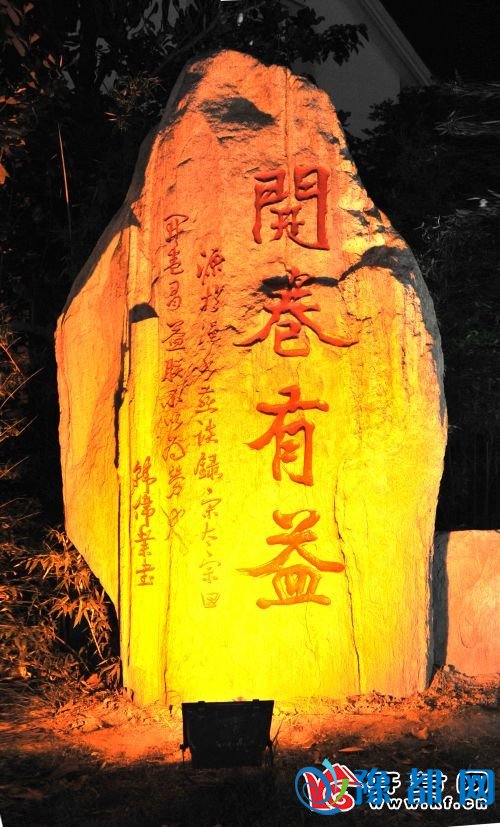 開卷有益
源於澠水燕談録宋太宗曰
開卷有益朕不以為勞也
韓偉業書
豫都网
www.kf.cn